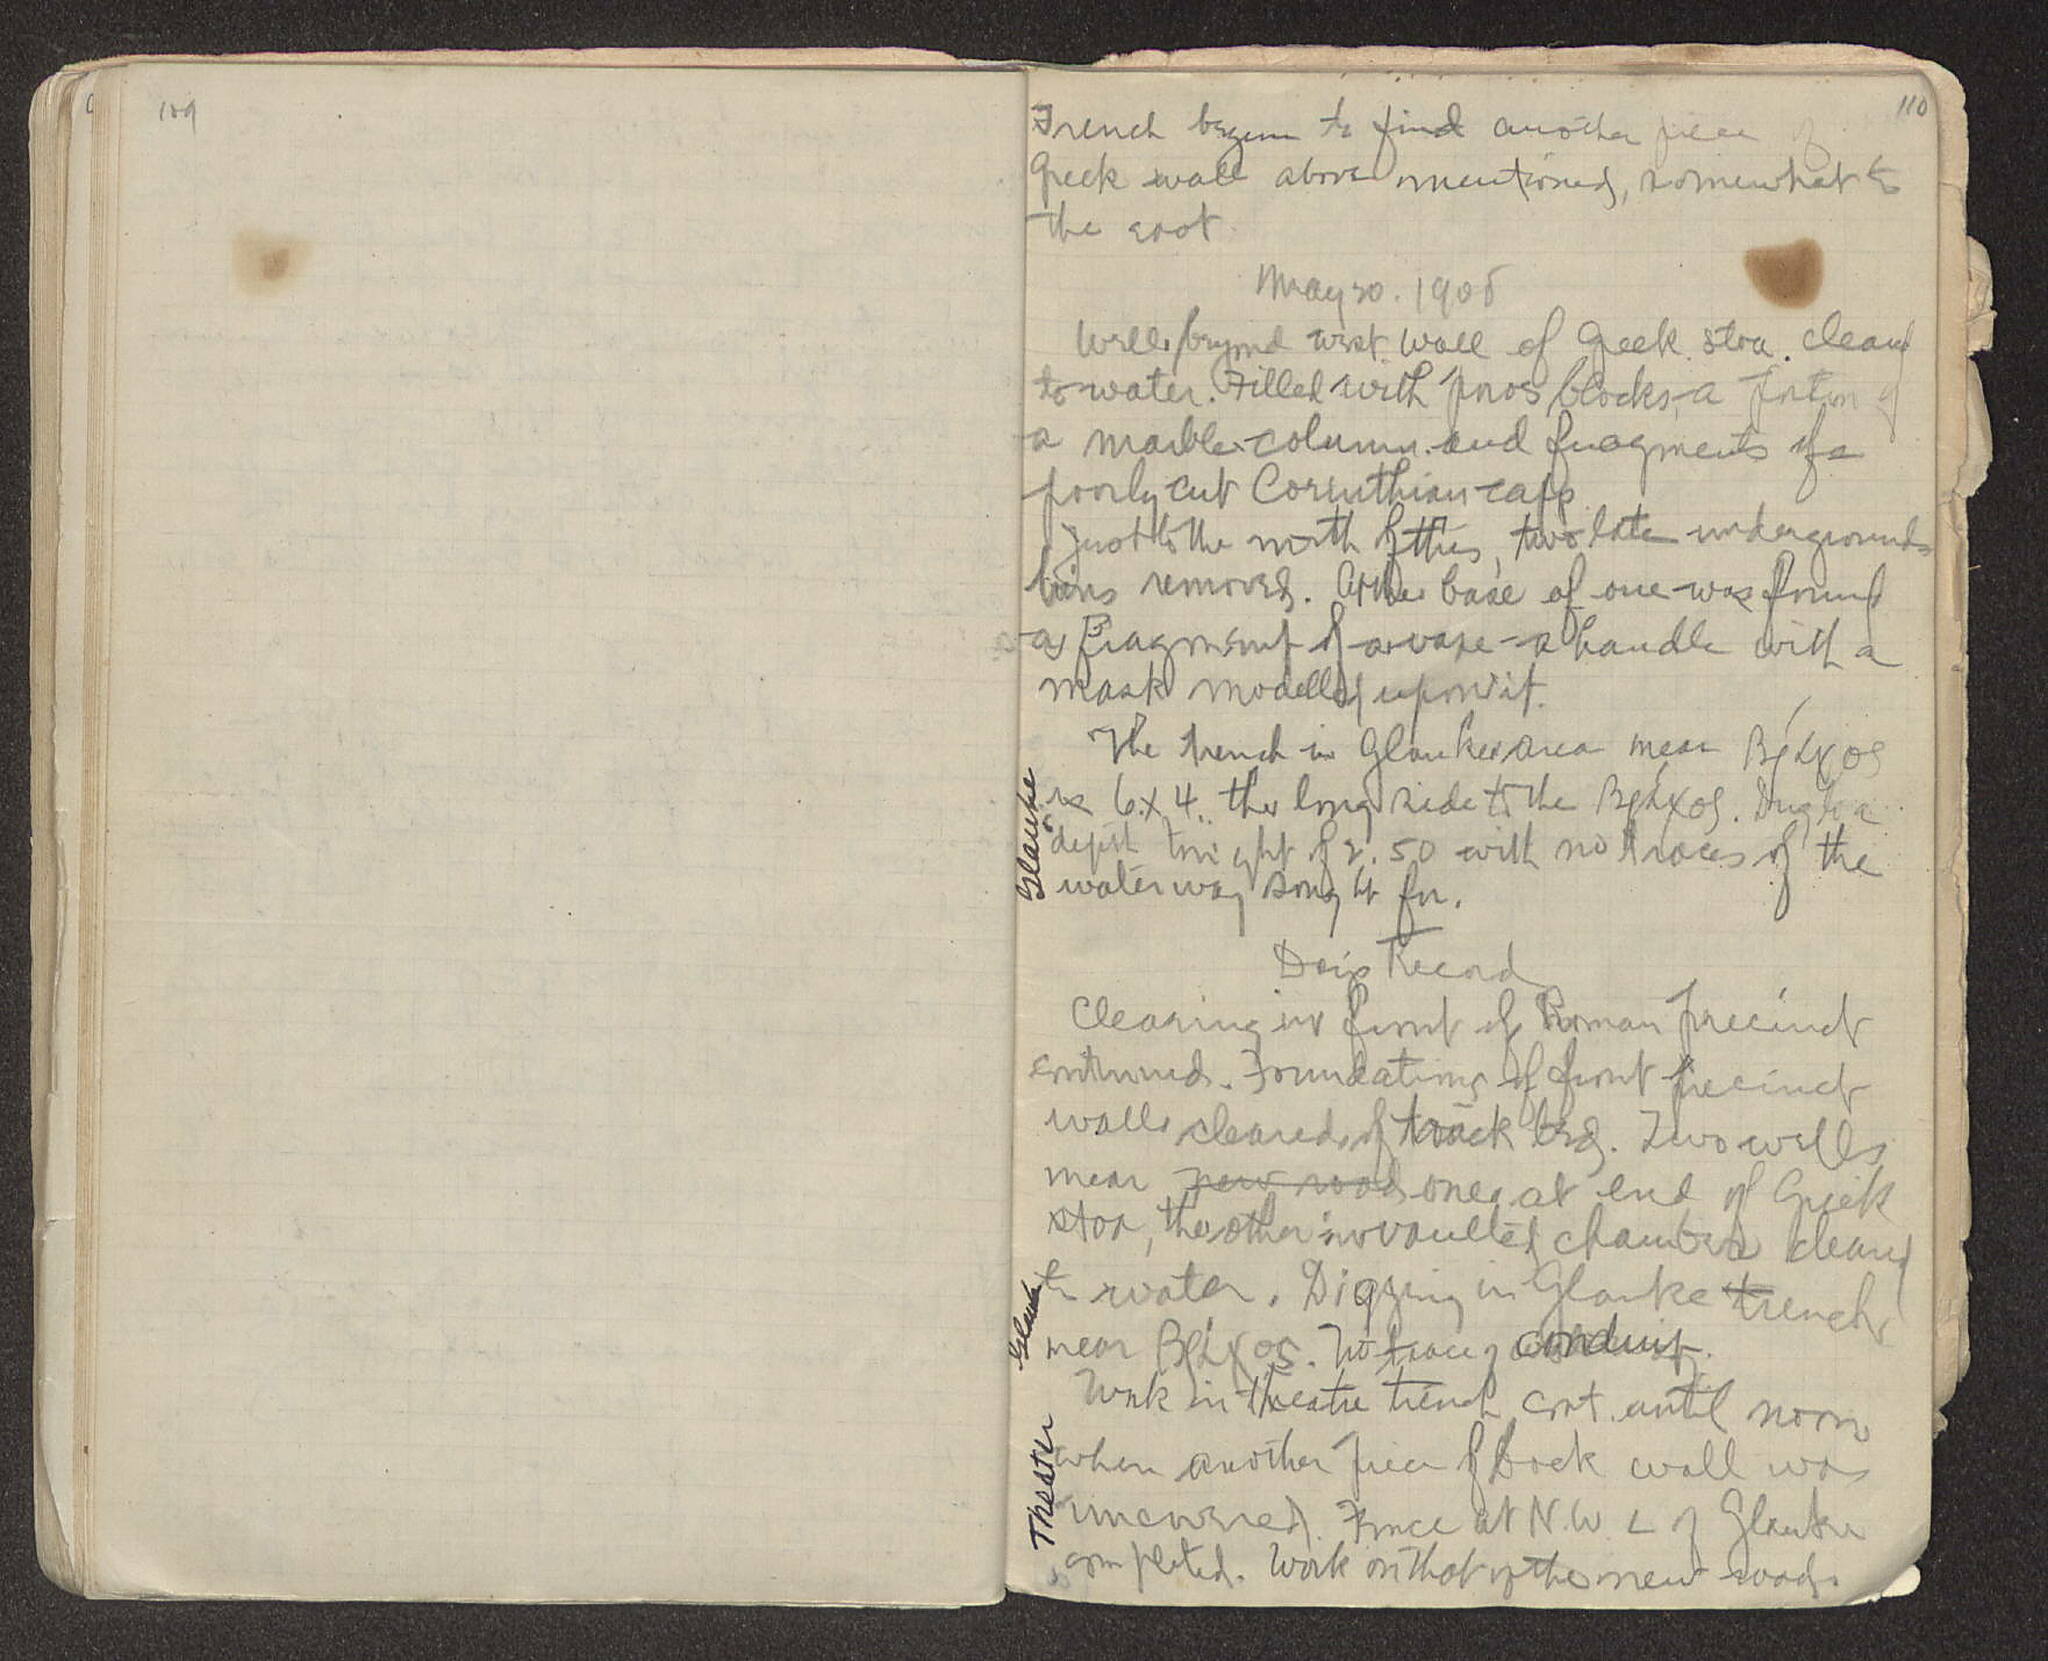 109
110
Trench begun to find another piece of
Greek wall above mentioned, somewhat to
the east.
May 20. 1908
Well beyond west wall of Greek stoa. cleared
to water. Filled with poros blocks, a portion of
a marble column and fragments of a
poorly cut Corinthian cap.
Just to the north of this, two late underground
bins removed. At the base of one was found
a fragment of a vase - a handle with a
mask modelled upon it.
The trench in Glauke area near Βράχος
Glauke
is 6 x 4. the long side to the Βράχος. Dug to a
depth tonight of 2.50 with no traces of the
waterway sought for.
Day's Record
Clearing in front of Roman precinct
continued. Foundations of front precinct
walls cleared of track bed. Two wells
near new road one at end of Greek
stoa, the other in vaulted chamber cleared
to water. Digging in Glauke trench
Glauke
near Βράχος. No trace of conduit.
Work in theatre trench cont. until noon
Theater
when another piece of back wall was
uncovered. Fence at N.W. ∠ of Glauke
completed. Work on that of the new road.